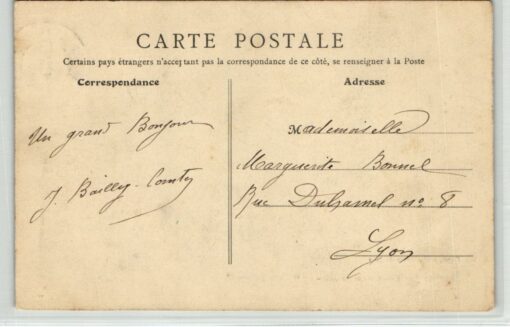 CARTE POSTALE
Certains pays étrangers n'acceptant pas la correspondance de ce côté, se renseigner à la Poste
Correspondance
Adresse
Un grand Bonjour
J. Bailly-Comte
Mademoiselle
Marguerite Bonnel
Rue Duhamel no 8
Lyon